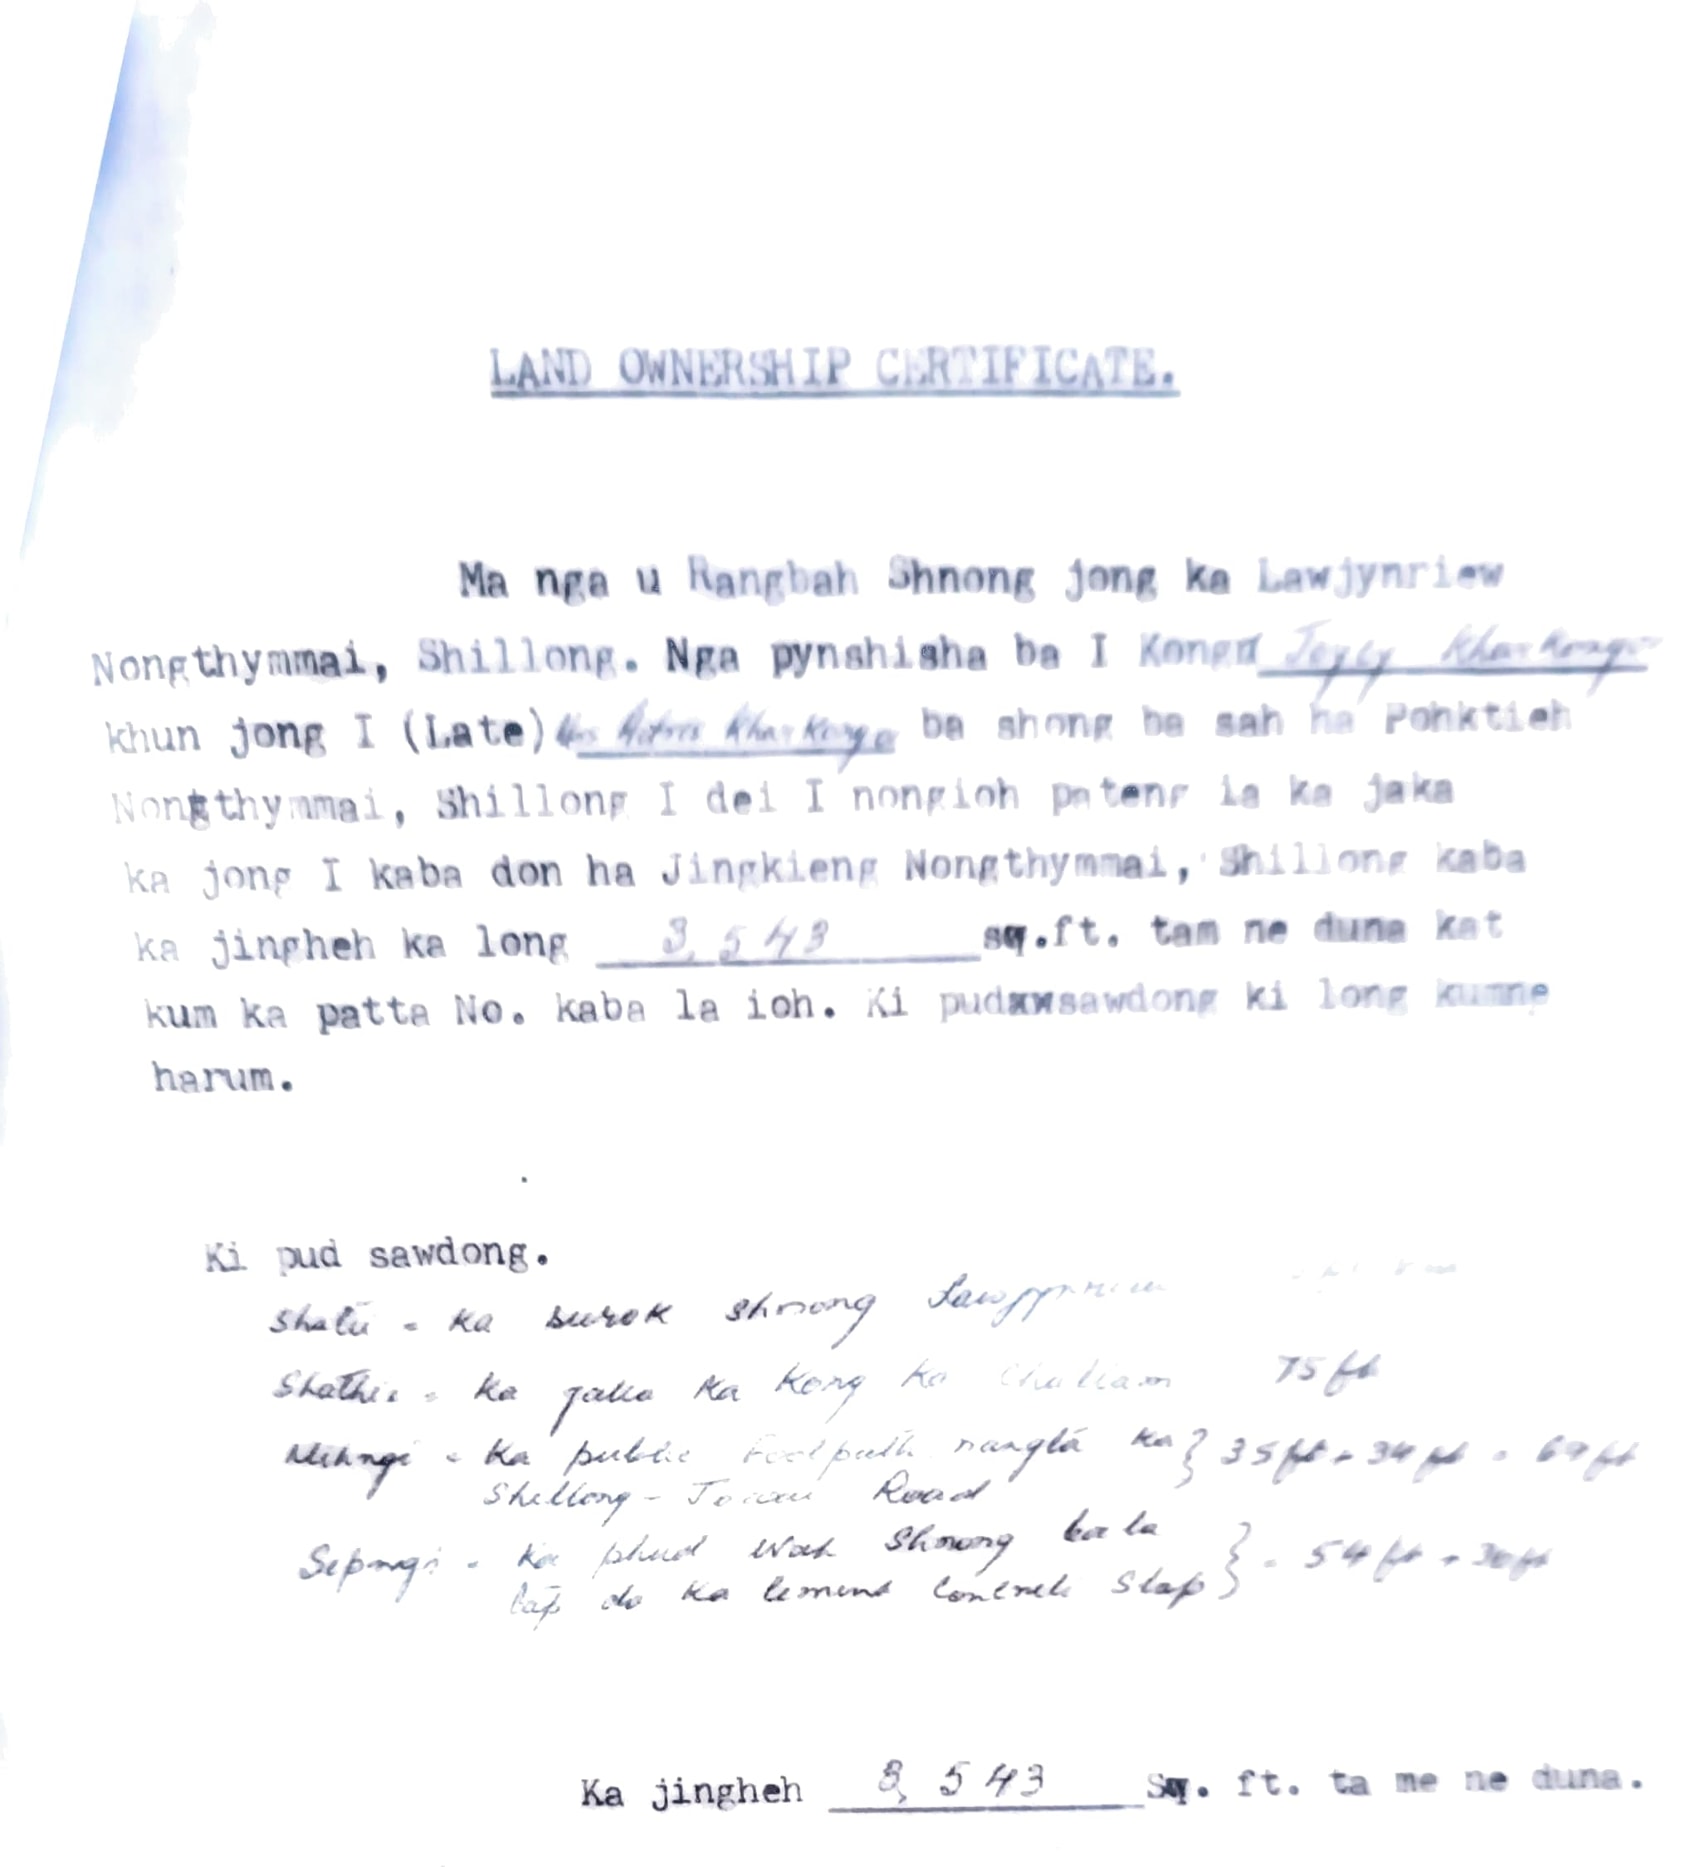 LAND OWNERSHIP CERTIFICATE.
Ma nga u Rangbah Shnong jong ka Lawjynriew
Nongthymmai, Shillong. Nga pynshisha ba I Kong Joycy Kharkongor
khun jong I (Late) Kharkongor ba shong ba sah ha Pohktieh
Nongthymmai, Shillong I dei I nongioh pateng ia ka jaka
ka jong I kaba don ha Jingkieng Nongthymmai, Shillong kaba
ka jingheh ka long 3,543 sq.ft. tam ne duna kat
kum ka patta No. kaba la ioh. Ki pud sawdong ki long kumne
harum.
Ki pud sawdong.
Shatei = Ka surok shnong
Shathie = Ka jaka ka Kong Ka 75 ft
Mihngi = Ka public Footpath nangta ka } 35 ft + 34 ft = 69 ft
Shillong - Road
Sepngi = Ka phud Wah Shnong ba la } = 54 ft + 30 ft
tap da ka cement concrete Slap
Ka jingheh 3,543 Sq. ft. ta me ne duna.